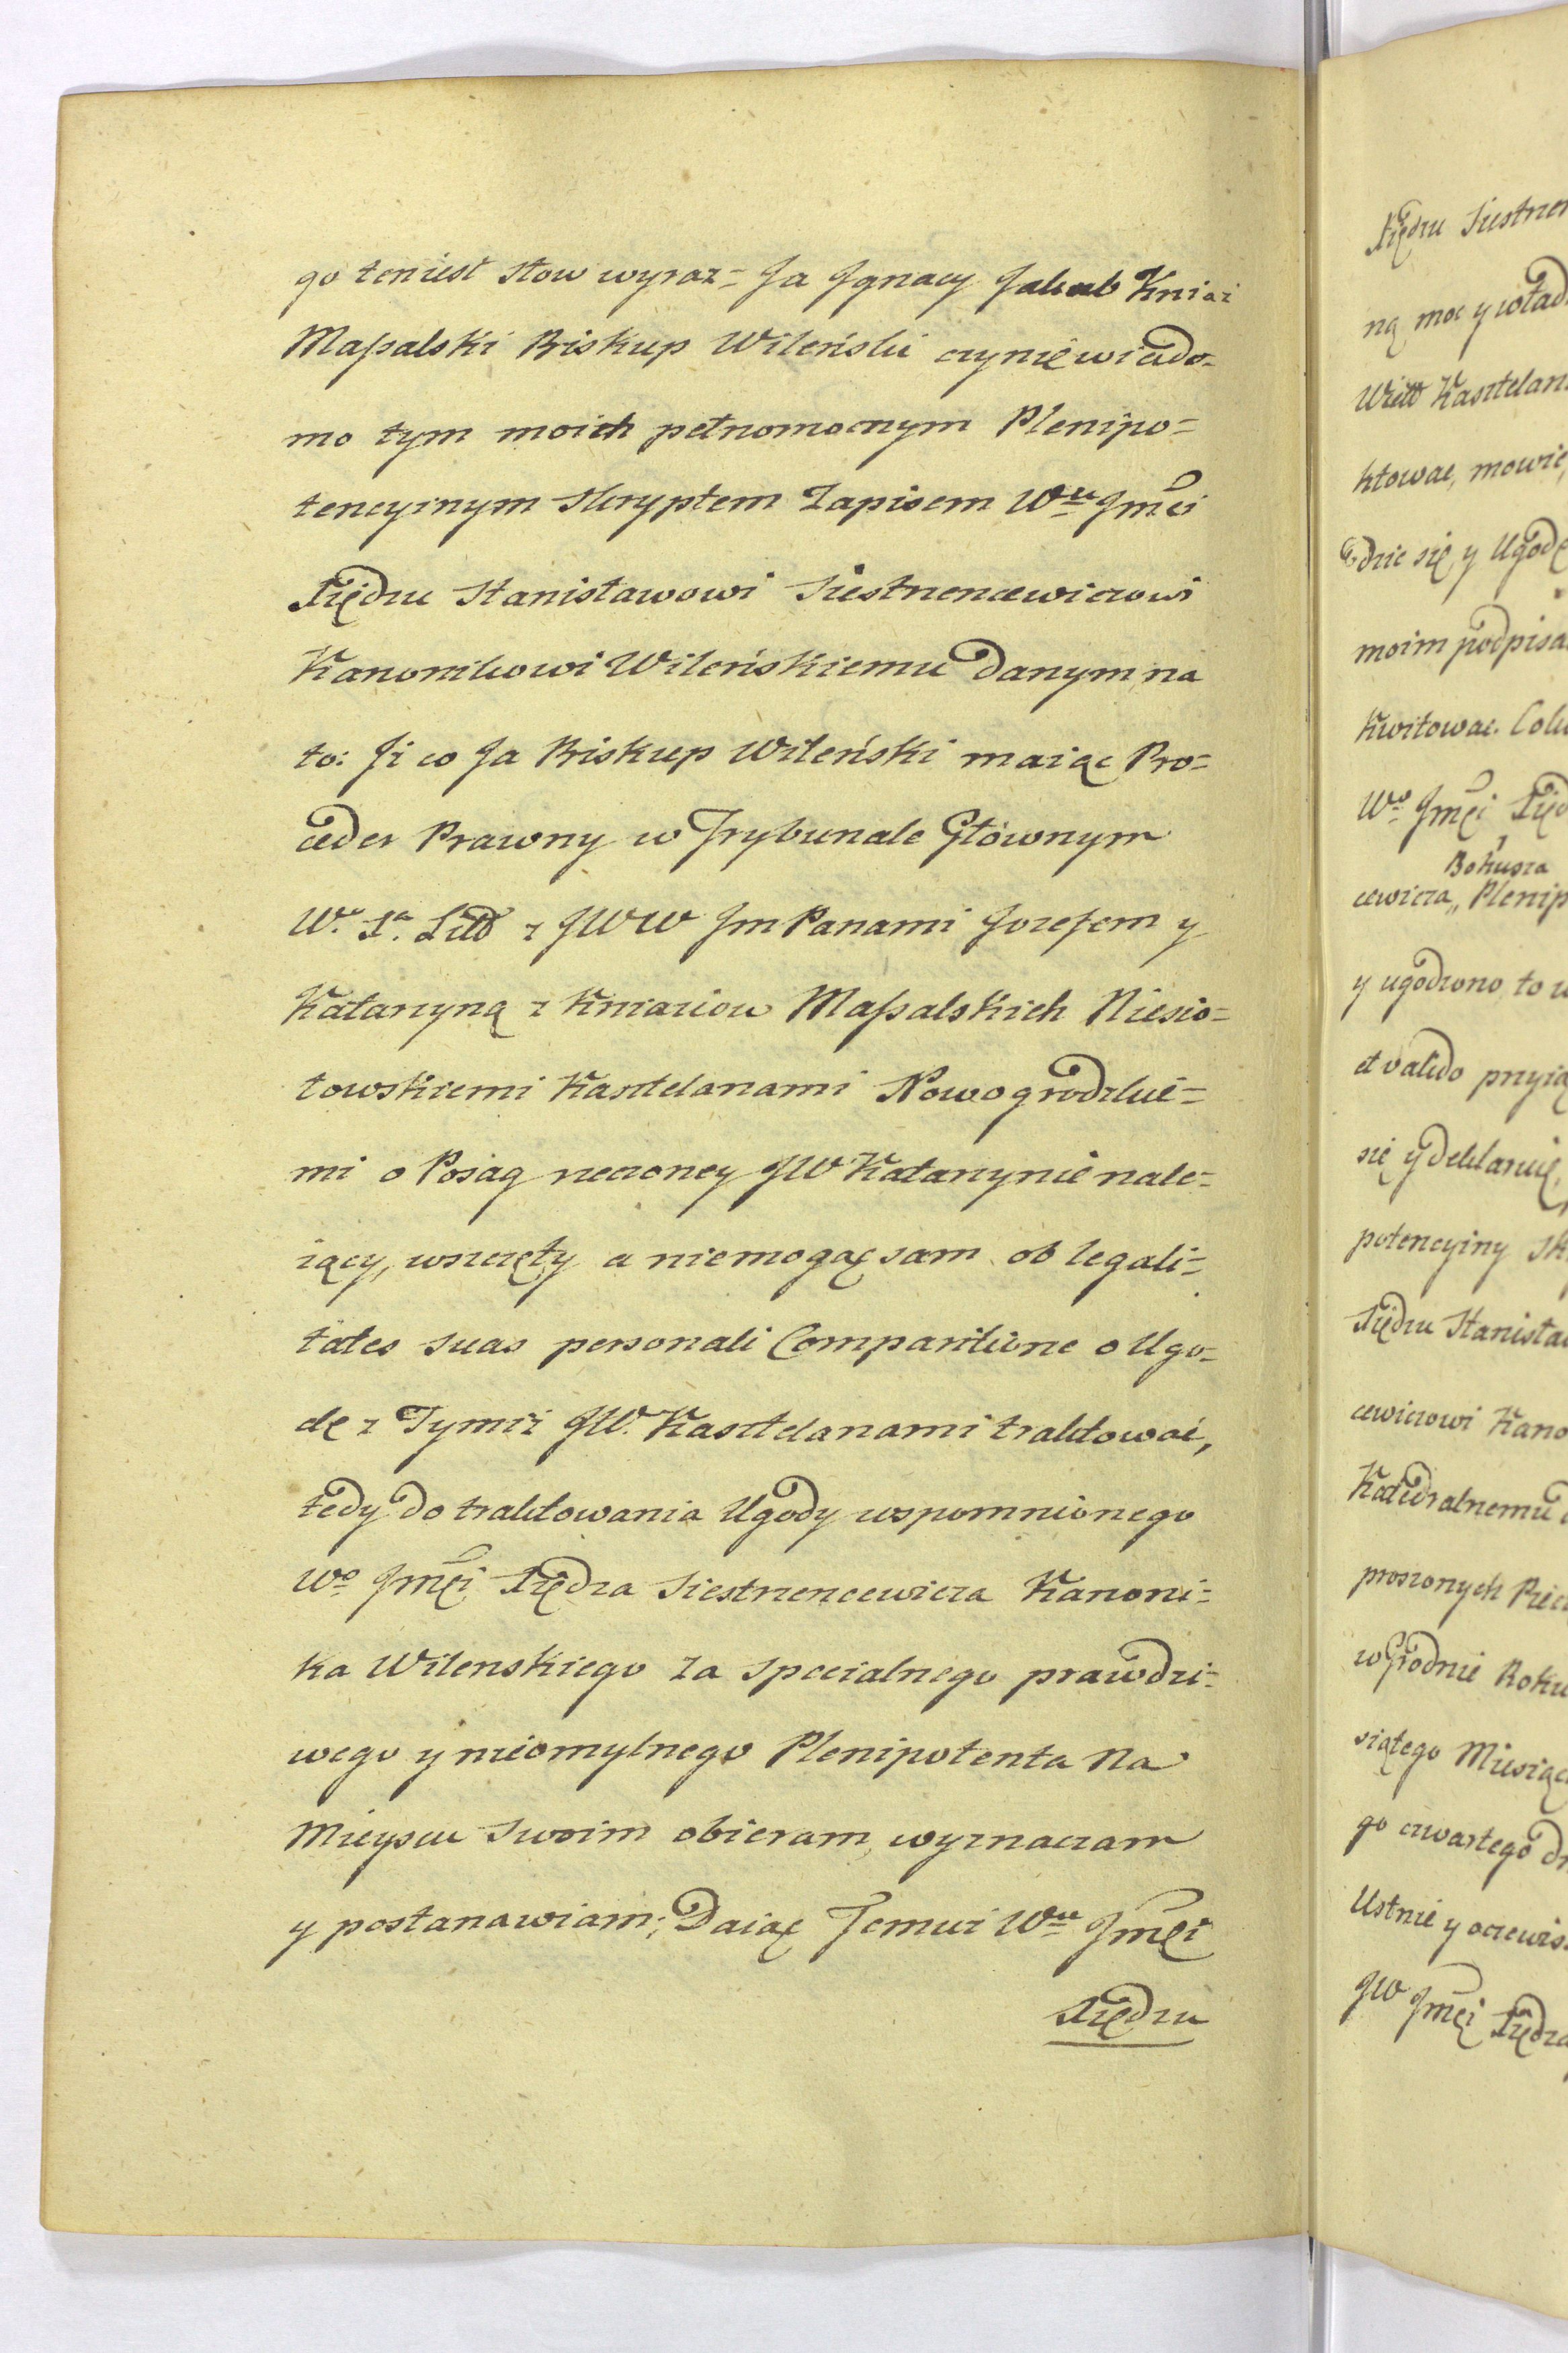 go ten iest słow wyraz= Ja Jgnacy Jakub Kniaź
Maſsalski Biskup Wileński czynię wiado=
mo tym moich pełnomocnym Plenipo=
tencyinym Skryptem Zapisem Wu Jmci
Xiędzu Stanisławowi Siestrzencewiczowi
Kanonikowi Wileńskiemu danym, na
to: Ji co Ja Biskup Wileński maiąc Pro=
ceder Prawny w Trybunale Głównym
W. X. Litt z JWW Jm Panami Jozefem y
Katarzyną z Kniaziow Maſsalskich Niesio=
łowskiemi Kasztelanami Nowogrodzkie=
mi o Posag rzeczoney JW Katarzynie nale=
żący, wszczęty a niemogąc sam ob legali=
tates suas personali Comparitione o Ugo=
dę z Tymiż JW. Kasztelanami traktować,
tedy do traktowania Ugody wspomnionego
Wo Jmci Xiędza Siestrzencewicza Kanoni=
ka Wilenskiego za specialnego prawdzi=
wego y nieomylnego Plenipotenta Na
Mieyscu swoim obieram, wyznaczam
y postanawiam; Daiąc Jemuż Wu Jmci
Xiędzu
Xiędzu Siestrzen
ną moc y wład
Wielo Kasztelan
ktować, mowić,
dzic się, y Ugodę
moim podpisa
Kwitować.
Wo Jmci Xięd
Bohusza
cewicza,, Plenip
y ugodzono, to
et valido przyią
się y deklaruię,
potencyiny Sk
Xiędzu Stanisła
cewiczowi Kano
Katedralnemu
proszonych Piecz
w Grodnie Roku
siątego Miesiąca
go czwartego
Ustnie y oczewis
JW Jmci Xiędza